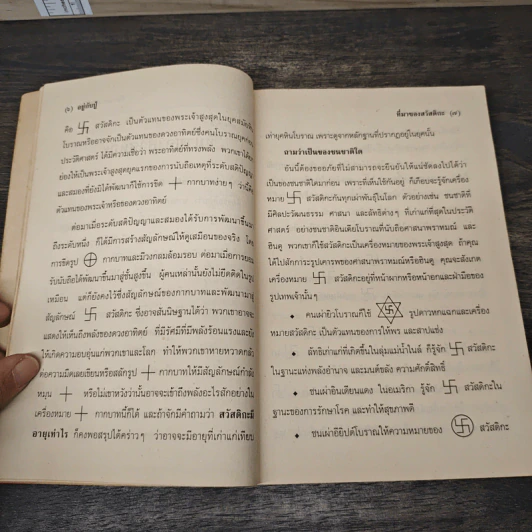 (๖) อยู่กับปู่
คือ 卐 สวัสดิกะ เป็นตัวแทนของพระเจ้าสูงสุดในยุคสมัยหิน
โบราณหรืออาจจักเป็นตัวแทนของดวงอาทิตย์ซึ่งคนโบราณยุคก่อน
ประวัติศาสตร์ ได้มีความเชื่อว่า พระอาทิตย์ที่ทรงพลัง พวกเขาได้ยก
ย่องให้เป็นพระเจ้าสูงสุดยุคแรกของการนับถือเหตุที่ระดับสติปัญญา
และสมองที่ยังมิได้พัฒนาก็ใช้การขีด + กากบาทง่ายๆ ว่านี้คือ
ตัวแทนของพระเจ้าหรือของดวงอาทิตย์
ต่อมาเมื่อระดับสติปัญญาและสมองได้รับการพัฒนาขึ้นมา
ถึงระดับหนึ่ง ก็ได้มีการสร้างสัญลักษณ์ให้ดูเสมือนของจริง โดย
การขีดรูป ⊕ กากบาทและมีวงกลมล้อมรอบ ต่อมาเมื่อการยอม
รับนับถือได้พัฒนาขึ้นมาสู่ชั้นสูงขึ้น ผู้คนเหล่านั้นยังไม่ยึดติดในรูป
เหมือน แต่ก็ยังคงไว้ซึ่งสัญลักษณ์ของกากบาทและพัฒนามาสู่
สัญลักษณ์ 卐 สวัสดิกะ ซึ่งอาจสันนิษฐานได้ว่า พวกเขาอาจจะ
แสดงให้เห็นถึงพลังของดวงอาทิตย์ ที่มีรัศมีที่มีพลังร้อนแรงและยัง
ให้เกิดความอบอุ่นแก่พวกเขาและโลก ทำให้พวกเขาหายหวาดกลัว
ต่อความมืดเลยเขียนหรือสลักรูป + กากบาทให้มีสัญลักษณ์กำลัง
หมุน + หรือไม่เขาหวังว่านั้นอาจจะเข้าถึงพลังอะไรสักอย่างใน
เครื่องหมาย + กากบาทนี้ก็ได้ และถ้าจักมีคำถามว่า สวัสดิกะมี
อายุเท่าไร ก็คงพอสรุปได้คร่าวๆ ว่าอาจจะมีอายุที่เก่าแก่เทียบ
ที่มาของสวัสดิกะ (๗)
เท่ายุคหินโบราณ เพราะดูจากหลักฐานที่ปรากฏอยู่ในยุคนั้น
ถามว่าเป็นของชนชาติใด
อันนี้ต้องขออภัยที่ไม่สามารถจะยืนยันให้แน่ชัดลงไปได้ว่า
เป็นของชนชาติใดมาก่อน เพราะที่เห็นใช้กันอยู่ ก็เกือบจะรู้จักเครื่อง
หมาย 卐 สวัสดิกะ กันทุกเผ่าพันธุ์ในโลก ตัวอย่างเช่น ชนชาติที่
มีศิลปะวัฒนธรรม ศาสนา และลัทธิต่างๆ ที่เก่าแก่ที่สุดในประวัติ
ศาสตร์ อย่างชนชาติอินเดียโบราณที่นับถือศาสนาพราหมณ์ และ
ฮินดู พวกเขาก็ใช้สวัสดิกะเป็นเครื่องหมายของพระเจ้าสูงสุด ถ้าคุณ
ได้ไปสักการะรูปเคารพของศาสนาพราหมณ์หรือฮินดู คุณจะสังเกต
เครื่องหมาย 卐 สวัสดิกะอยู่ที่หน้าผากหรือหน้าอกและฝ่ามือของ
รูปเทพเจ้านั้นๆ
◆ คนเผ่ายิวโบราณก็ใช้ ✡ รูปดาวหกแฉกและเครื่อง
หมายสวัสดิกะ เป็นตัวแทนของการให้พร และสาปแช่ง
◆ ลัทธิเก่าแก่ที่เกิดขึ้นในลุ่มแม่น้ำไนล์ ก็รู้จัก 卐 สวัสดิกะ
ในฐานะแห่งพลังอำนาจ และมนต์ขลัง ความศักดิ์สิทธิ์
◆ ชนเผ่าอินเดียนแดง ในอเมริกา รู้จัก 卐 สวัสดิกะใน
ฐานะของการรักษาโรค และทำให้สุขภาพดี
◆ ชนเผ่าอียิปต์โบราณให้ความหมายของ 卐 สวัสดิกะ